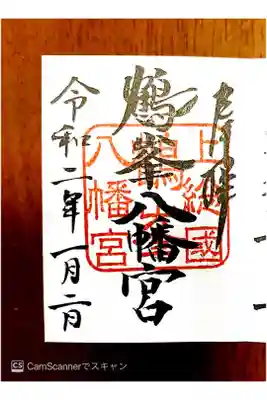 奉拝
鶴峯八幡宮
上總國
八幡宮
令和二年一月二日
CS CamScannerでスキャン